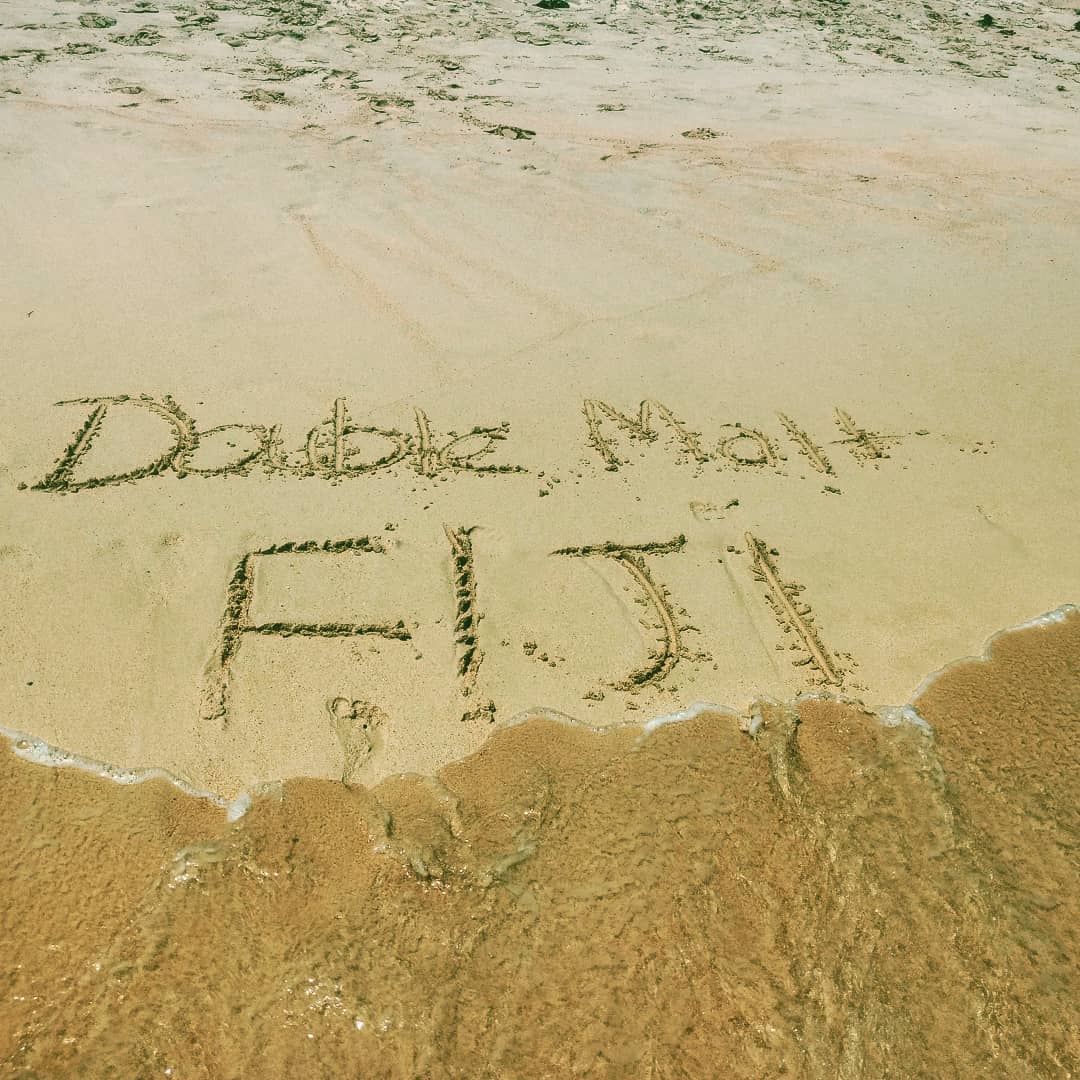 Double Malt
FIJI